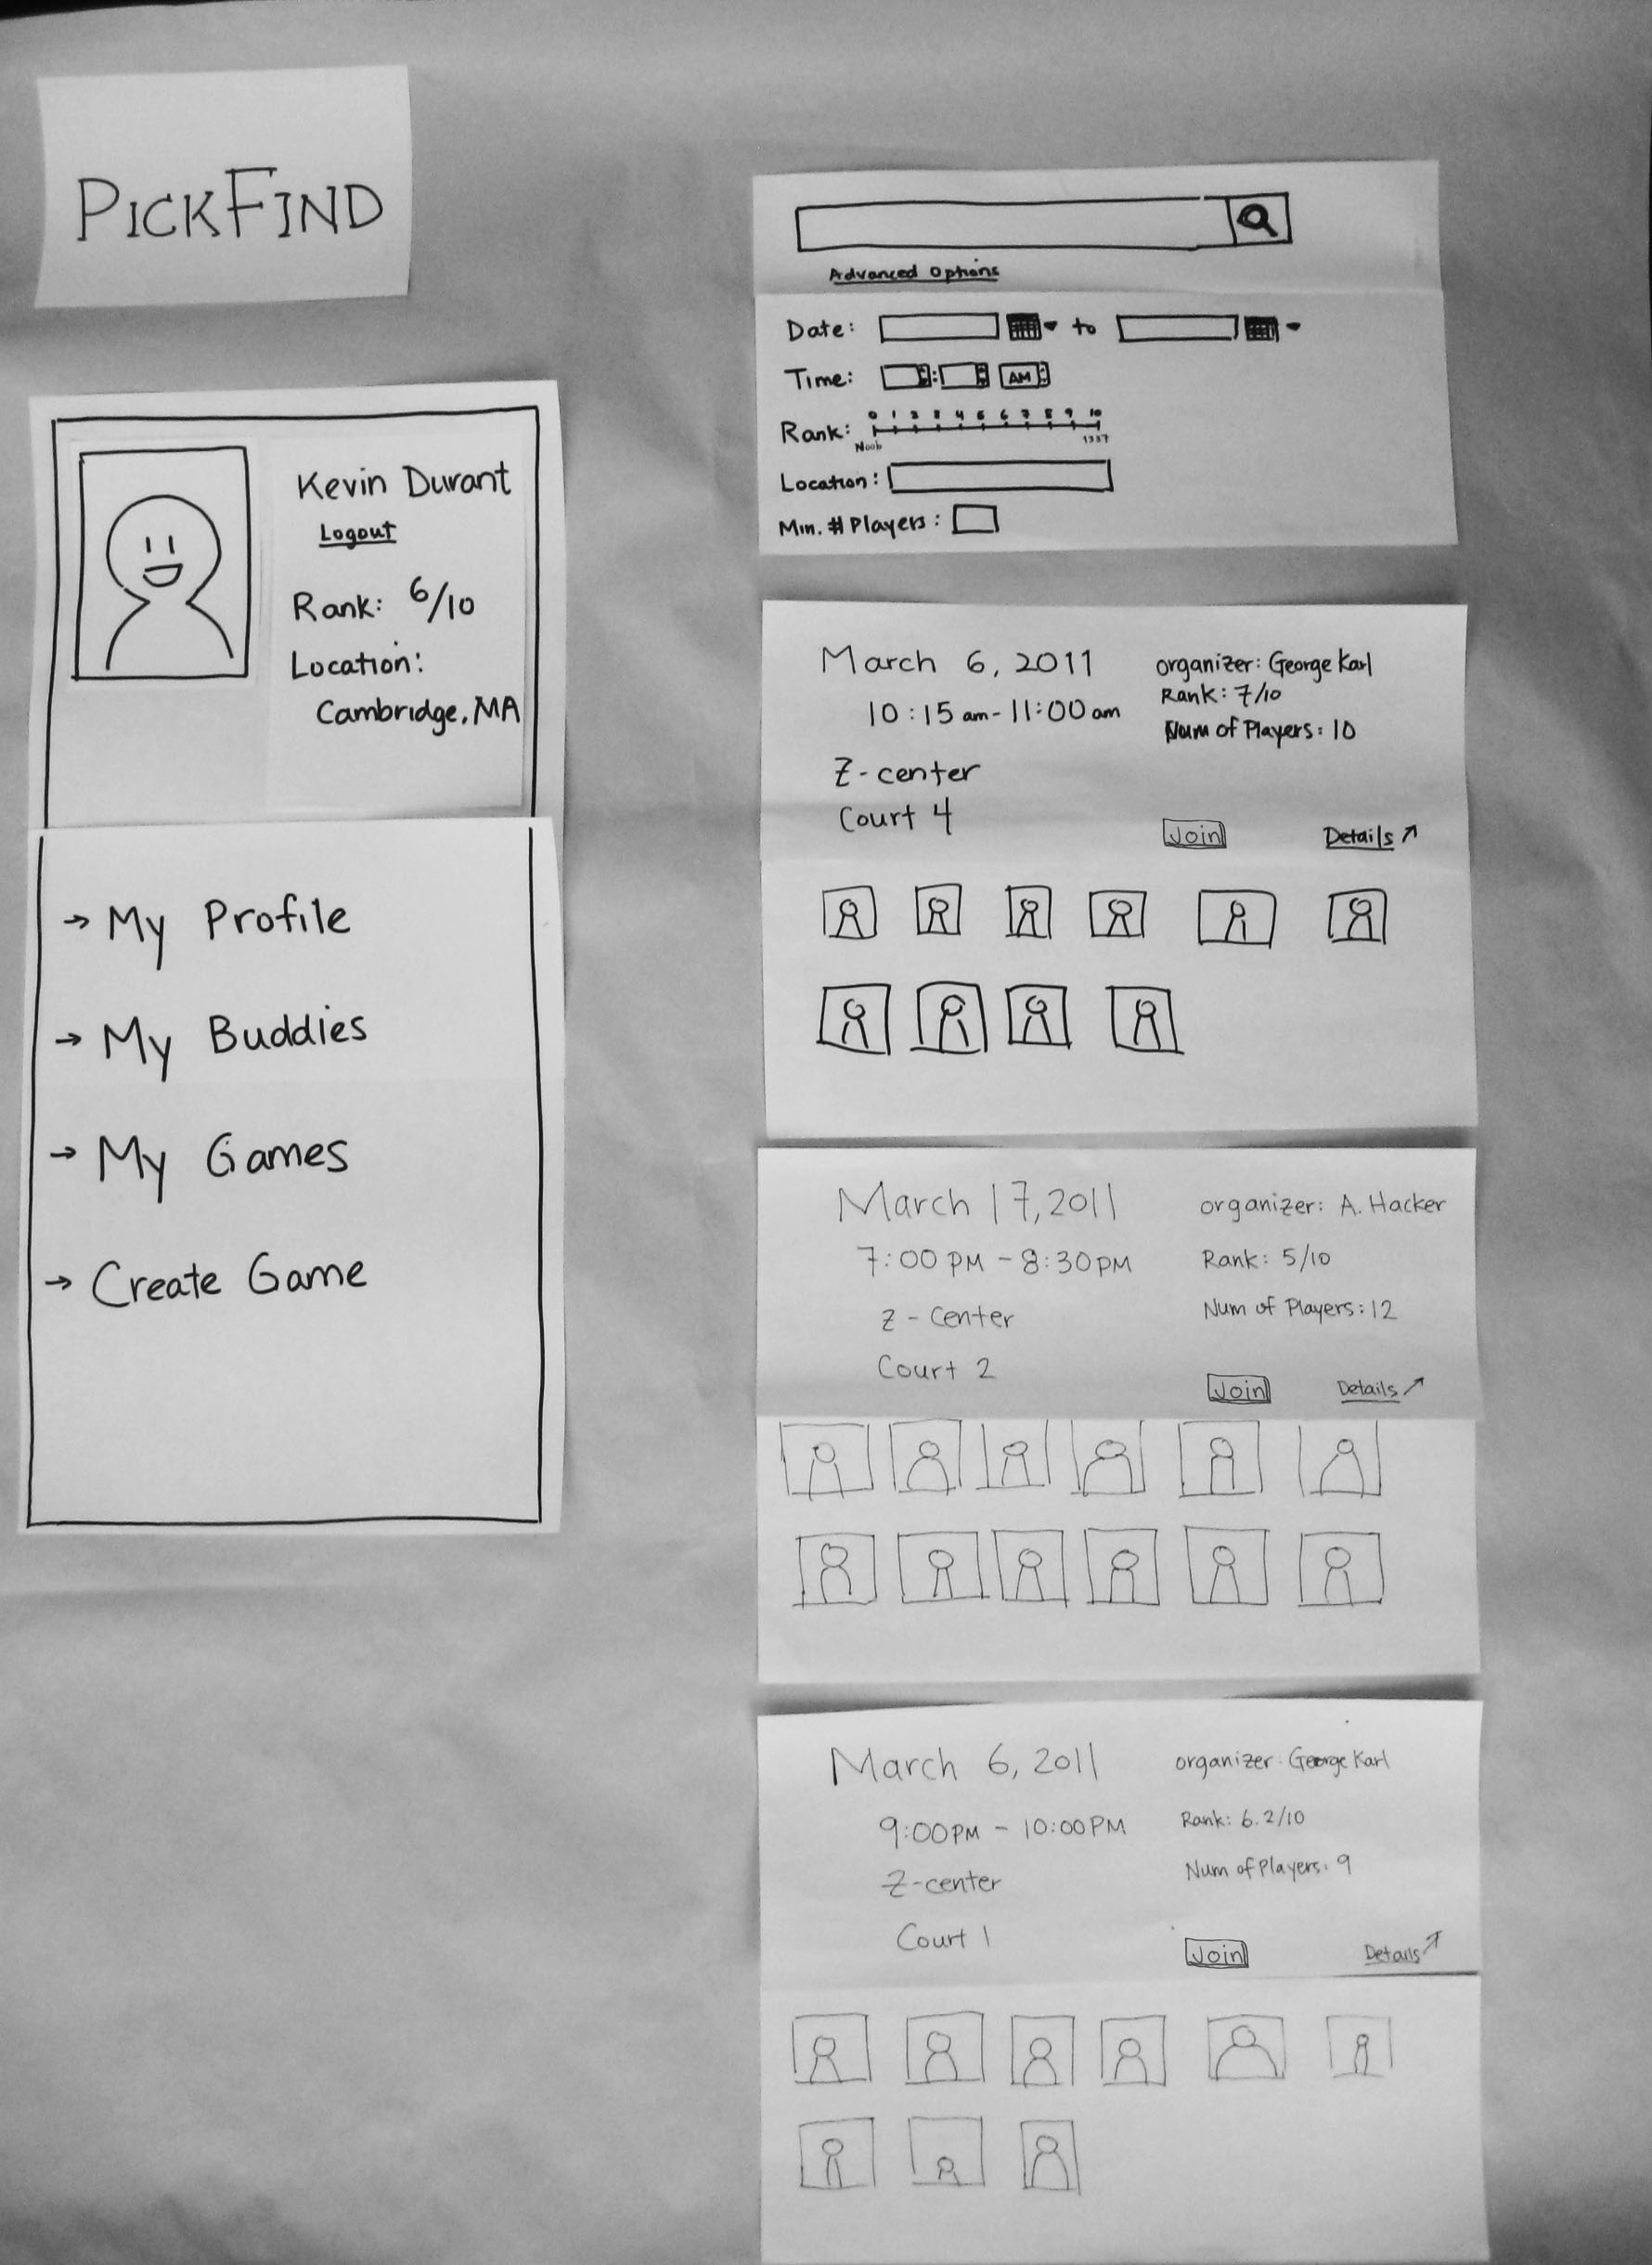 PICKFIND
Kevin Durant
Logout
Rank: 6/10
Location:
Cambridge, MA
→ My Profile
→ My Buddies
→ My Games
→ Create Game
Advanced Options
Date: to
Time: : AM
Rank: 0 1 2 3 4 5 6 7 8 9 10
Noob 1337
Location:
Min. # Players:
March 6, 2011
10:15 am - 11:00 am
Z-center
Court 4
organizer: George Karl
Rank: 7/10
Num of Players: 10
Join Details ↗
March 17, 2011
7:00 PM - 8:30 PM
Z-Center
Court 2
organizer: A. Hacker
Rank: 5/10
Num of Players: 12
Join Details ↗
March 6, 2011
9:00PM - 10:00PM
Z-center
Court 1
organizer: George Karl
Rank: 6.2/10
Num of Players: 9
Join Details ↗